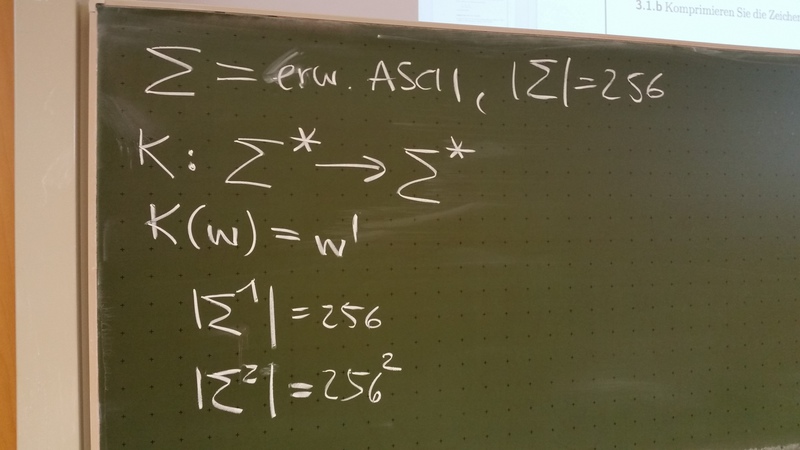 3.1.b Komprimieren Sie die Zeichen
Σ = erw. ASCII, |Σ|=256
K: Σ* → Σ*
K(w) = w'
|Σ¹| = 256
|Σ²| = 256²